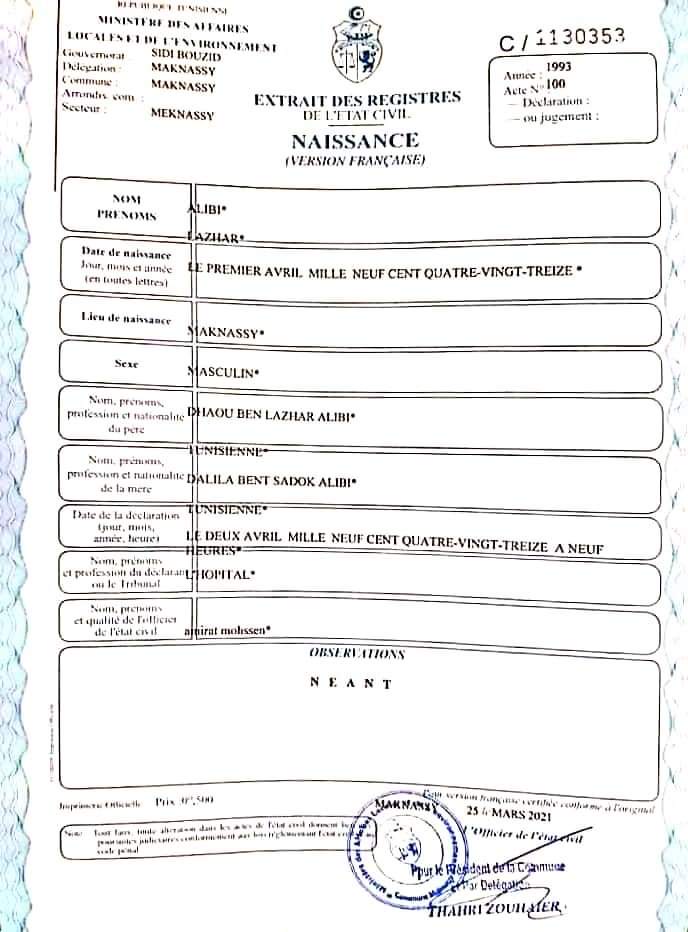 REPUBLIQUE TUNISIENNE
MINISTÈRE DES AFFAIRES
LOCALES ET DE L'ENVIRONNEMENT
Gouvernorat : SIDI BOUZID
Délégation : MAKNASSY
Commune : MAKNASSY
Arrondis. com. :
Secteur : MEKNASSY
C / 1130353
Année : 1993
Acte N° 100
— Déclaration :
— ou jugement :
EXTRAIT DES REGISTRES
DE L'ETAT CIVIL
NAISSANCE
(VERSION FRANÇAISE)
NOM
PRENOMS
ALIBI*
LAZHAR*
Date de naissance
Jour, mois et année
(en toutes lettres)
LE PREMIER AVRIL MILLE NEUF CENT QUATRE-VINGT-TREIZE *
Lieu de naissance
MAKNASSY*
Sexe
MASCULIN*
Nom, prénoms,
profession et nationalité
du père
DHAOU BEN LAZHAR ALIBI*
TUNISIENNE*
Nom, prénoms,
profession et nationalité
de la mère
DALILA BENT SADOK ALIBI*
TUNISIENNE*
Date de la déclaration
(jour, mois,
année, heure)
LE DEUX AVRIL MILLE NEUF CENT QUATRE-VINGT-TREIZE A NEUF
HEURES*
Nom, prénoms
et profession du déclarant
ou le Tribunal
L'HOPITAL*
Nom, prénoms
et qualité de l'officier
de l'état civil
amirat mohssen*
OBSERVATIONS
N E A N T
Imprimerie Officielle Prix : 0D,500
Pour version française certifiée conforme à l'original
25 MARS 2021
L'Officier de l'état civil
Note : Tout faux, toute altération dans les actes de l'état civil donnent lieu
poursuites judiciaires conformément aux lois réglementant l'état civil
code pénal
MAKNASSY
Pour le Président de la Commune
et Par Délégation
THAHRI ZOUHAIER